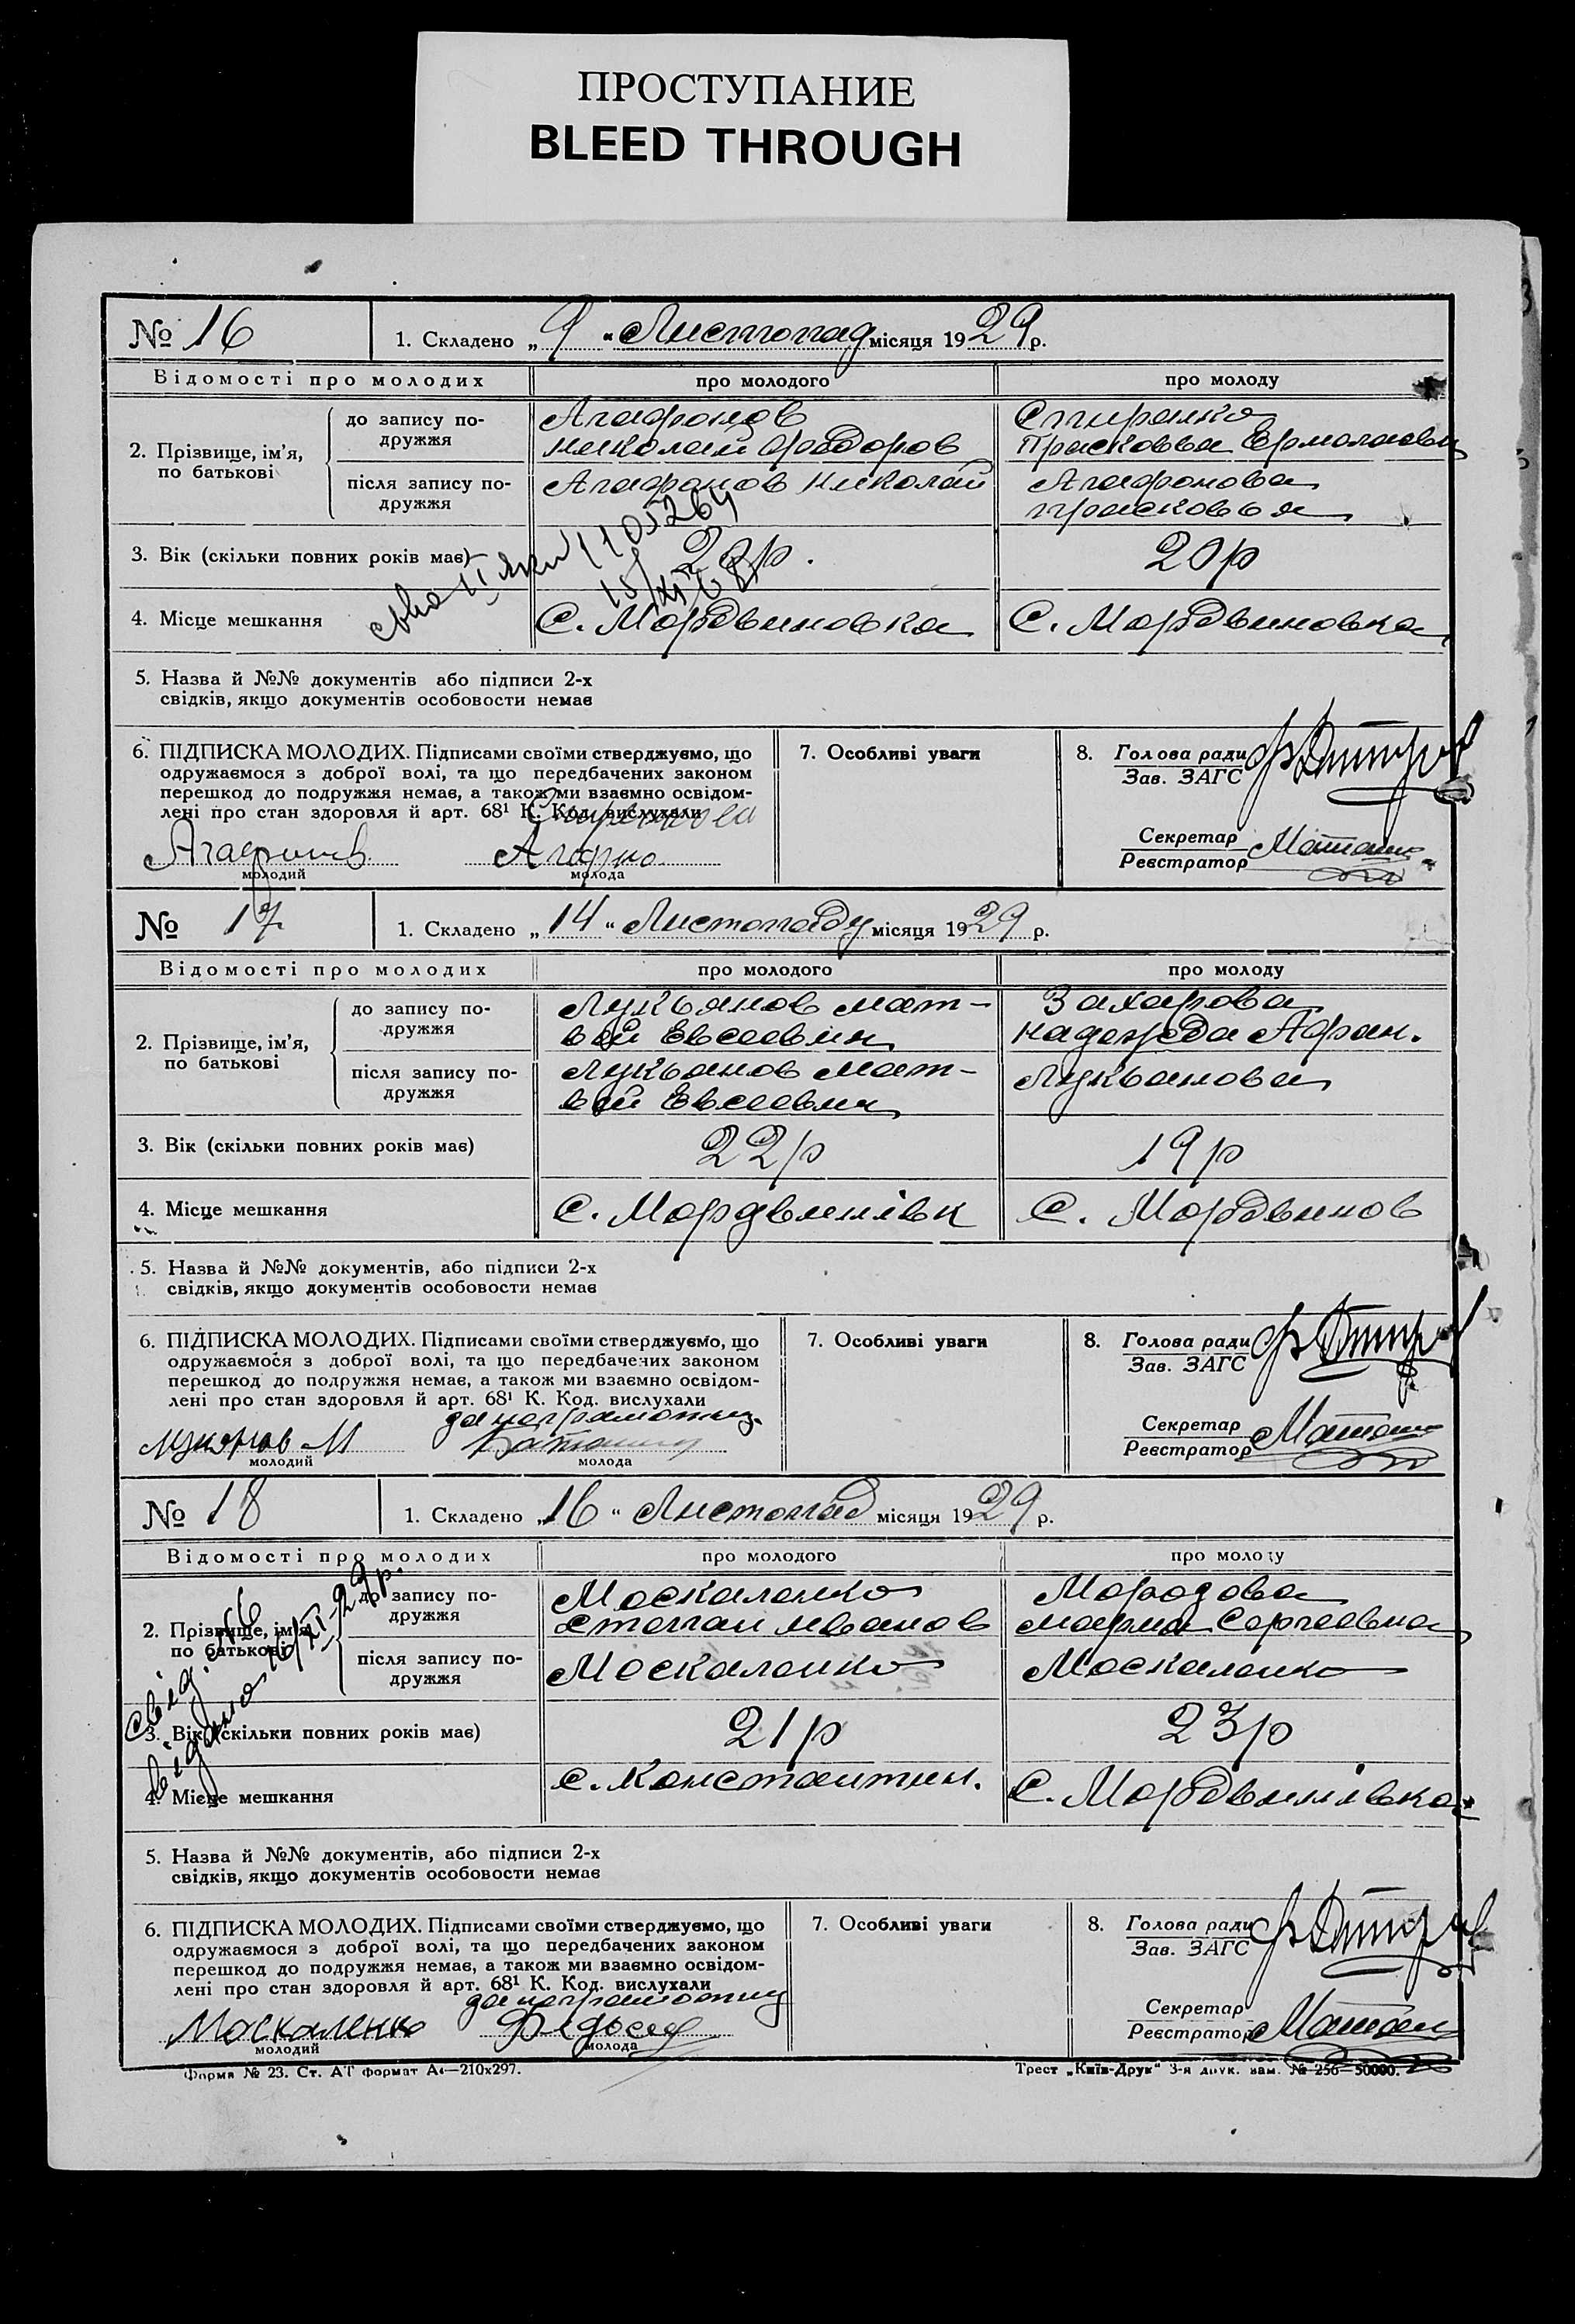 ПРОСТУПАНИЕ
BLEED THROUGH
№ 16
1. Складено „ 9 “ Листопад місяця 1929 р.
Відомості про молодих
про молодого
про молоду
2. Прізвище, ім'я,
по батькові
до запису по-
дружжя
Агафонов
Николай Федоров
Спиренко
Прасковья Ермолаевн
після запису по-
дружжя
Агафонов Николай
Агафонова
прасковья
3. Вік (скільки повних років має)
20р.
20р
1105264
15/XI 68
4. Місце мешкання
С. Мордвиновка
С. Мордвиновка
5. Назва й №№ документів або підписи 2-х
свідків, якщо документів особовости немає
6. ПІДПИСКА МОЛОДИХ. Підписами своїми стверджуємо, що
одружаємося з доброї волі, та що передбачених законом
перешкод до подружжя немає, а також ми взаємно освідом-
лені про стан здоровля й арт. 68¹ К. Код. вислухали
Агафонов
молодий
молода
7. Особливі уваги
8. Голова ради
Зав. ЗАГС
Секретар
Реєстратор
№ 17
1. Складено „ 14 “ Листопаду місяця 1929 р.
Відомості про молодих
про молодого
про молоду
2. Прізвище, ім'я,
по батькові
до запису по-
дружжя
Лукьянов мат-
вей Евсеевич
Захарова
надежда Афан.
після запису по-
дружжя
Лукьянов мат-
вей Евсеевич
Лукьянова
3. Вік (скільки повних років має)
22р
19р
4. Місце мешкання
С. Мордвинівк
С. Мордвинов
5. Назва й №№ документів, або підписи 2-х
свідків, якщо документів особовости немає
6. ПІДПИСКА МОЛОДИХ. Підписами своїми стверджуємо, що
одружаємося з доброї волі, та що передбачених законом
перешкод до подружжя немає, а також ми взаємно освідом-
лені про стан здоровля й арт. 68¹ К. Код. вислухали
за неграмотну
молодий
молода
7. Особливі уваги
8. Голова ради
Зав. ЗАГС
Секретар
Реєстратор
№ 18
1. Складено „ 16 “ Листопад місяця 1929 р.
Відомості про молодих
про молодого
про молоду
2. Прізвище, ім'я,
по батькові
до запису по-
дружжя
Москаленко
Степан иванов
Морозова
мария Сергеевна
після запису по-
дружжя
Москаленко
Москаленко
свід. №6
видано 16/XI-29р.
3. Вік (скільки повних років має)
21р
23р
4. Місце мешкання
С. Константин.
С. Мордвинівка
5. Назва й №№ документів, або підписи 2-х
свідків, якщо документів особовости немає
6. ПІДПИСКА МОЛОДИХ. Підписами своїми стверджуємо, що
одружаємося з доброї волі, та що передбачених законом
перешкод до подружжя немає, а також ми взаємно освідом-
лені про стан здоровля й арт. 68¹ К. Код. вислухали
за неграмотну
Москаленко
молодий
молода
7. Особливі уваги
8. Голова ради
Зав. ЗАГС
Секретар
Реєстратор
Форма № 23. Ст. АТ формат А4—210х297.
Трест „Київ-Друк“ 3-я друк. зам. № 256—50000.